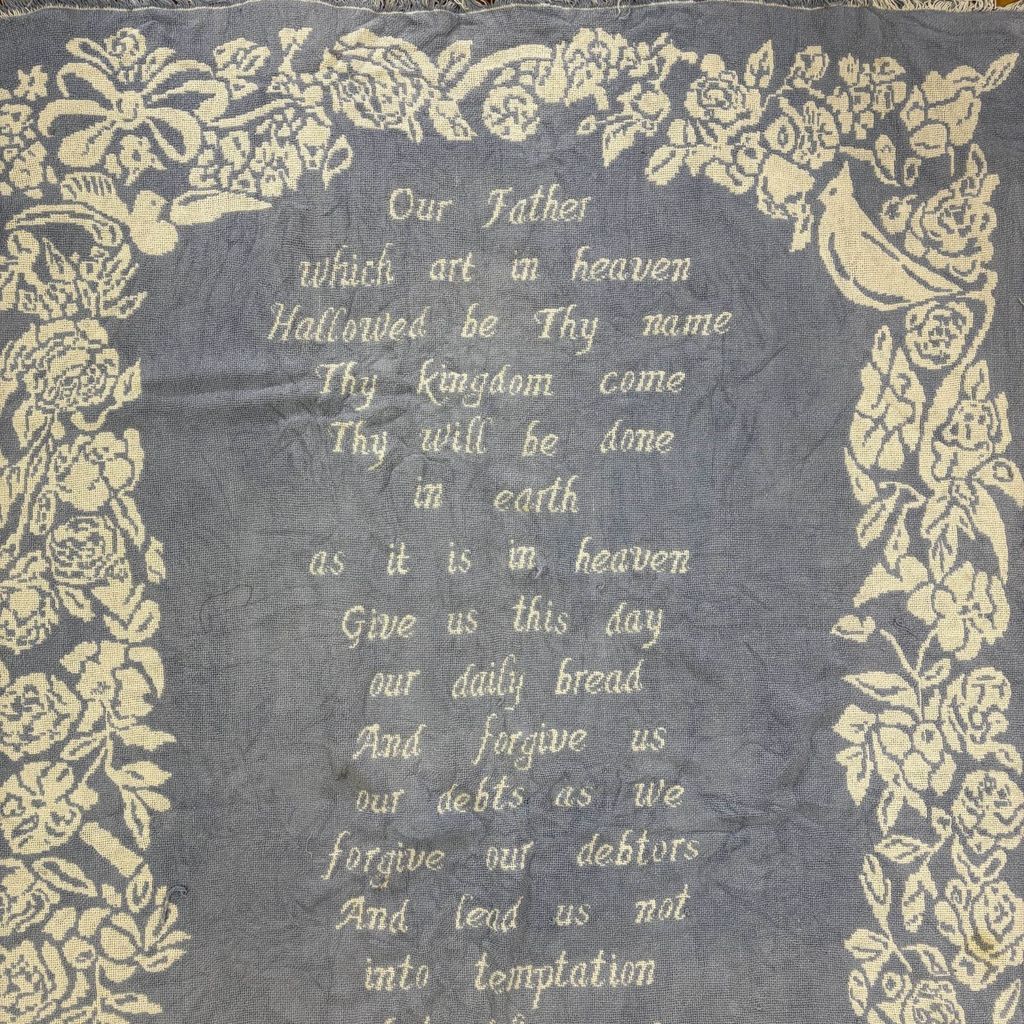 Our Father
which art in heaven
Hallowed be Thy name
Thy kingdom come
Thy will be done
in earth
as it is in heaven
Give us this day
our daily bread
And forgive us
our debts as we
forgive our debtors
And lead us not
into temptation